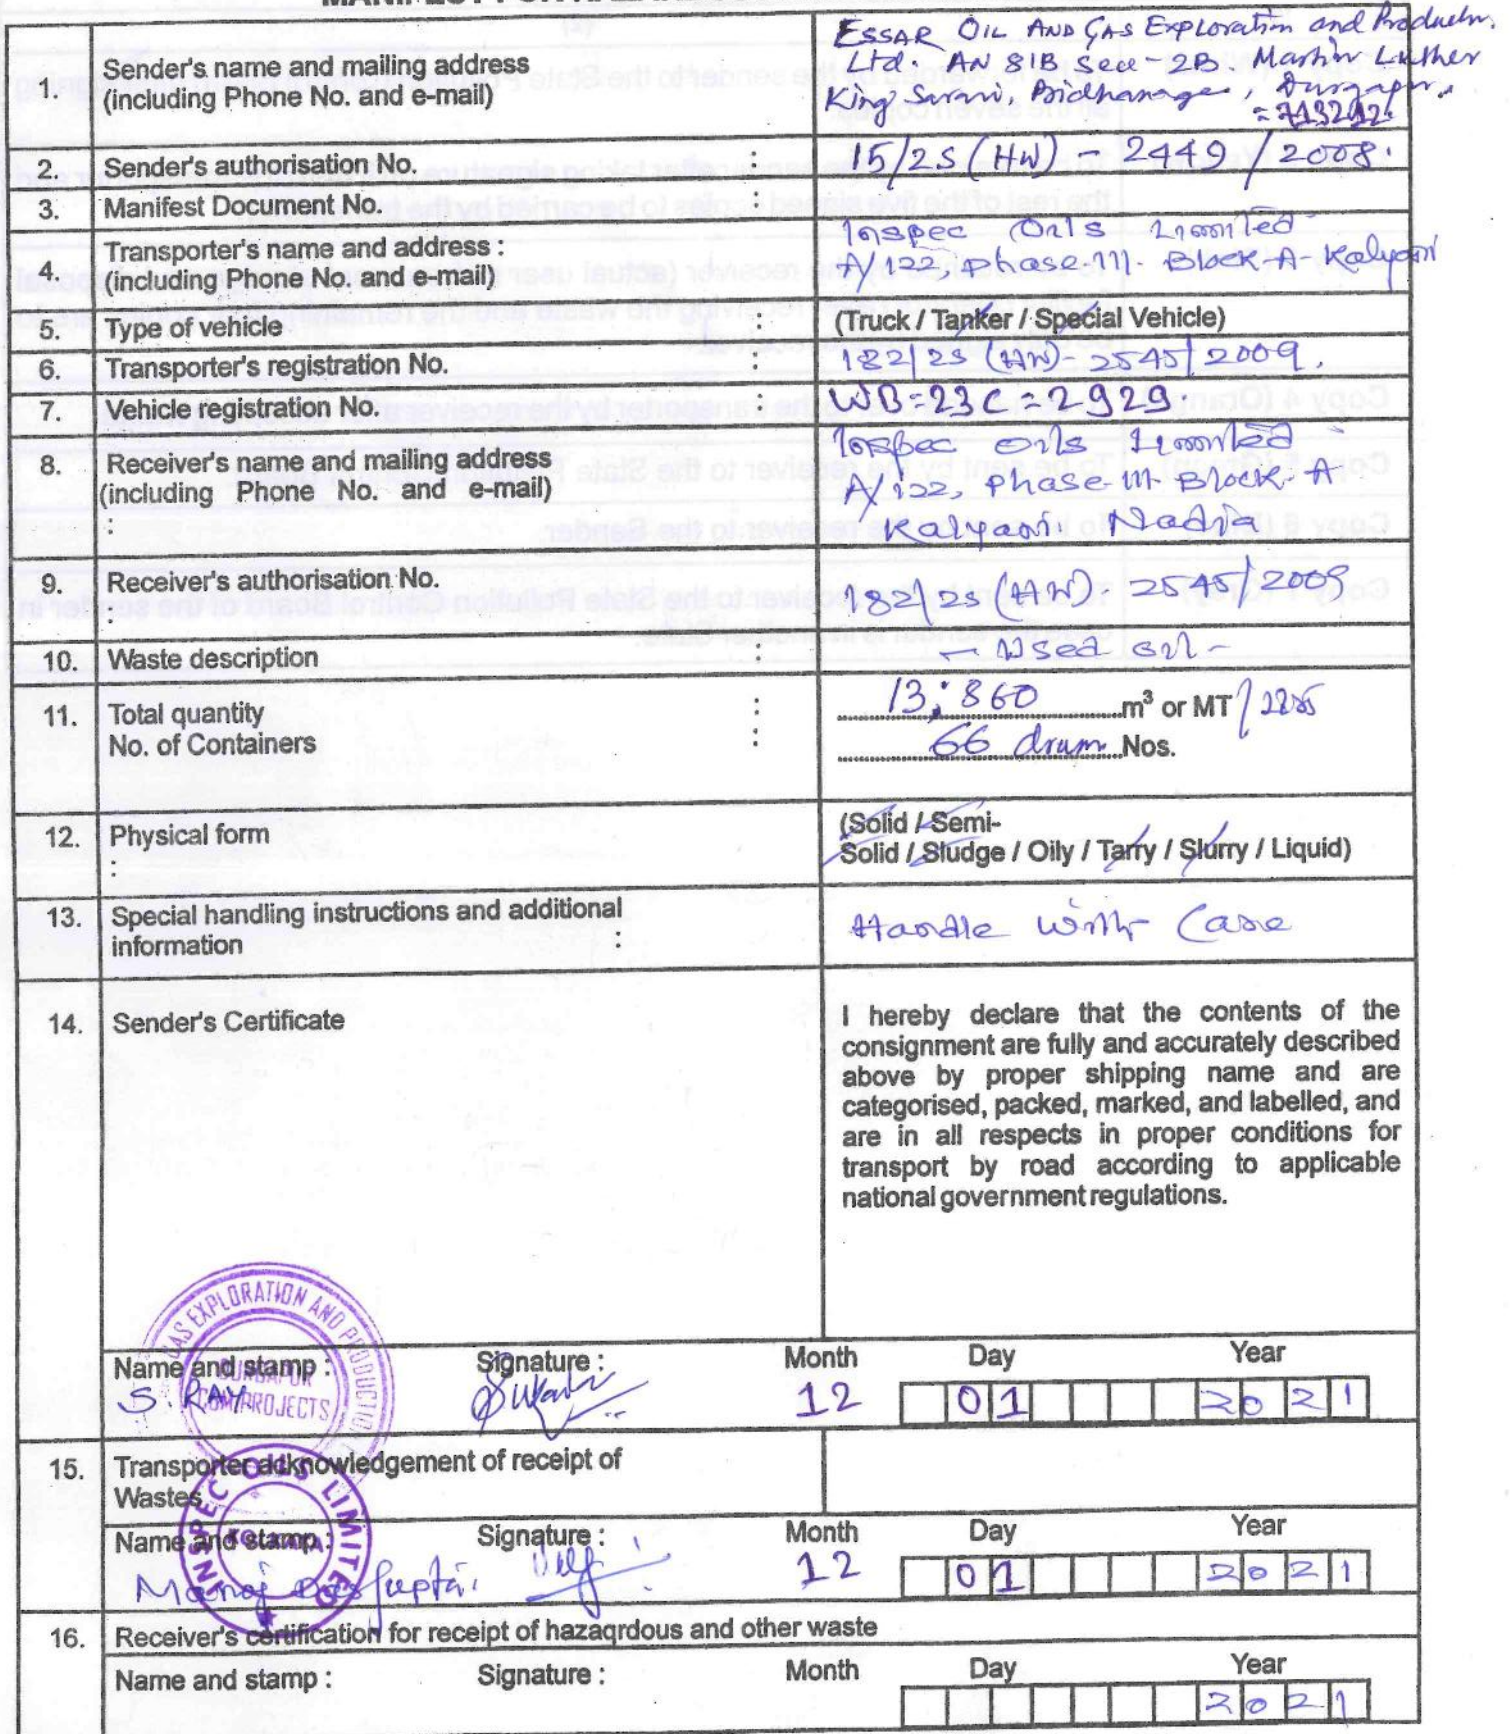 1. Sender's name and mailing address
(including Phone No. and e-mail)
ESSAR OIL AND GAS Exploration and Productn.
Ltd. AN 81B Sece-2B Martin Luther
King Sarani, Bidhanagar, Durgapur.
2. Sender's authorisation No. :
15/2S (HW) - 2449/2008.
3. Manifest Document No. :
4. Transporter's name and address :
(including Phone No. and e-mail)
Inspec Oils Limited
A/122, phase-III- Block-A- Kalyani
5. Type of vehicle :
(Truck / Tanker / Special Vehicle)
6. Transporter's registration No. :
182/2S (HW)- 2545/2009.
7. Vehicle registration No. :
WB-23C-2929.
8. Receiver's name and mailing address
(including Phone No. and e-mail)
:
Inspec oils Limited
A/122, Phase-III- Block-A
Kalyani. Nadia
9. Receiver's authorisation No.
:
182/2S (HW)- 2545/2009
10. Waste description :
- Used oil -
11. Total quantity :
No. of Containers :
13.860 m³ or MT
66 drum Nos.
12. Physical form
:
(Solid / Semi-
Solid / Sludge / Oily / Tarry / Slurry / Liquid)
13. Special handling instructions and additional
information :
Handle With Care
14. Sender's Certificate
I hereby declare that the contents of the
consignment are fully and accurately described
above by proper shipping name and are
categorised, packed, marked, and labelled, and
are in all respects in proper conditions for
transport by road according to applicable
national government regulations.
GAS EXPLORATION AND PRODUCTION
DURGAPUR
CBM PROJECTS
Name and stamp : Signature : Month Day Year
S. RAY 12 01 2021
15. Transporter acknowledgement of receipt of
Wastes
INSPEC OILS LIMITED
Name and stamp : Signature : Month Day Year
Manoj Dasgupta. 12 01 2021
16. Receiver's certification for receipt of hazaqrdous and other waste
Name and stamp : Signature : Month Day Year
2021